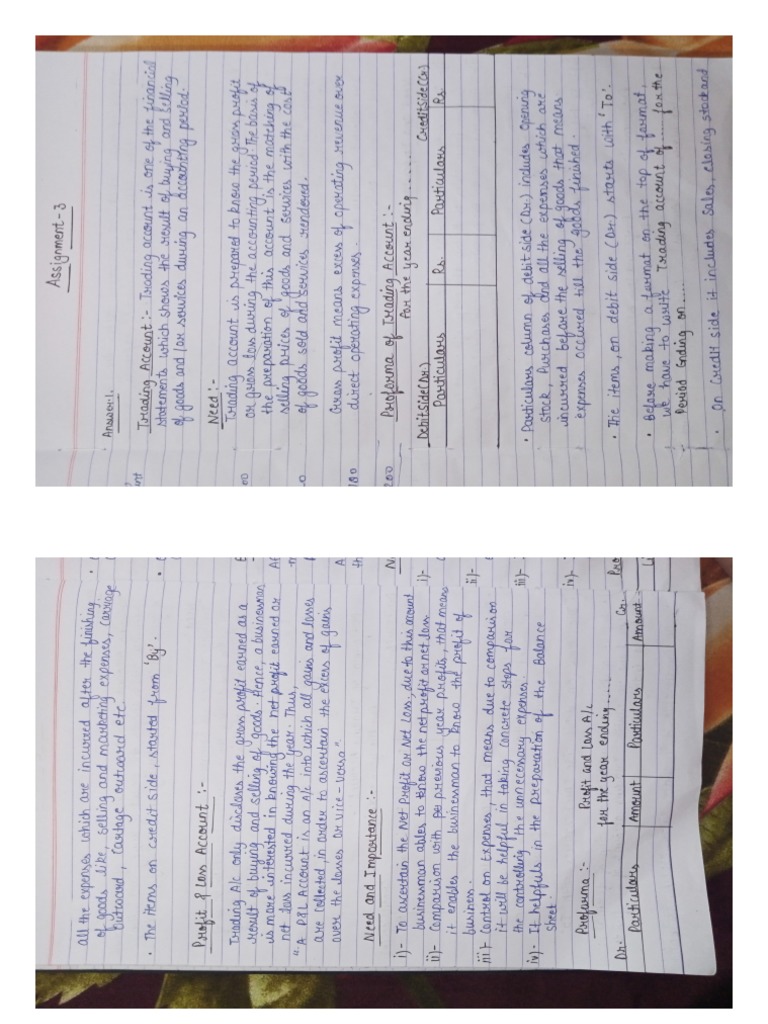 Assignment-3
Answer1.
Trading Account :- Trading account is one of the financial
statements which shows the result of buying and selling
of goods and/or services during an accounting period.
Need :-
Trading account is prepared to know the gross profit
or gross loss during the accounting period. The basis of
the preparation of this account is the matching of
selling prices of goods and services with the cost
of goods sold and services rendered.
Gross profit means excess of operating revenue over
direct operating expenses.
Proforma of Trading Account :-
For the year ending......
Debit Side (Dr.) Credit Side (Cr.)
Particulars Rs. Particulars Rs.
• Particulars column of debit side (Dr.) includes opening
stock, Purchases and all the expenses which are
incurred before the selling of goods that means
expenses occured till the goods finished.
• The items, on debit side (Dr.) starts with 'To'.
• Before making a format on the top of format,
we have to write Trading account of ..... for the
Period Ending on.....
• On Credit side it includes Sales, closing stock and
all the expenses which are incurred after the finishing
of goods like, selling and marketing expenses, carriage
outward, Cartage outward etc.
• The items on credit side, started from 'By'.
Profit & Loss Account :-
Trading A/c only discloses the gross profit earned as a
result of buying and selling of goods. Hence, a businessman
is more interested in knowing the net profit earned or
net loss incurred during the year. Thus,
"A P&L Account is an A/c into which all gains and losses
are collected, in order to ascertain the excess of gains
over the losses or vice-versa".
Need and Importance :-
i)- To ascertain the Net Profit or Net Loss; due to this amount
businessman ables to know the net profit or net loss.
ii)- Comparison with previous year profits, that means
it enables the businessman to know the profit of
business.
iii)- Control on Expenses, that means due to comparison
it will be helpful in taking concrete steps for
the controlling the unnecessary expenses.
iv)- It helpfuls in the preparation of the Balance
Sheet.
Proforma :- Profit and Loss A/c
for the year ending.....
Dr. Cr.
Particulars Amount Particulars Amount